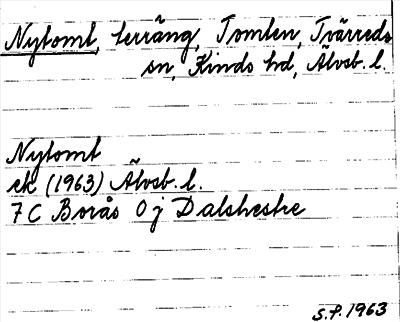 Nytomt, terräng, Tomten, Tvärreds
sn, Kinds hd, Älvsb. l.
Nytomt
ek (1963) Älvsb. l.
7 C Borås 0 j Dalsheske
S.P. 1963